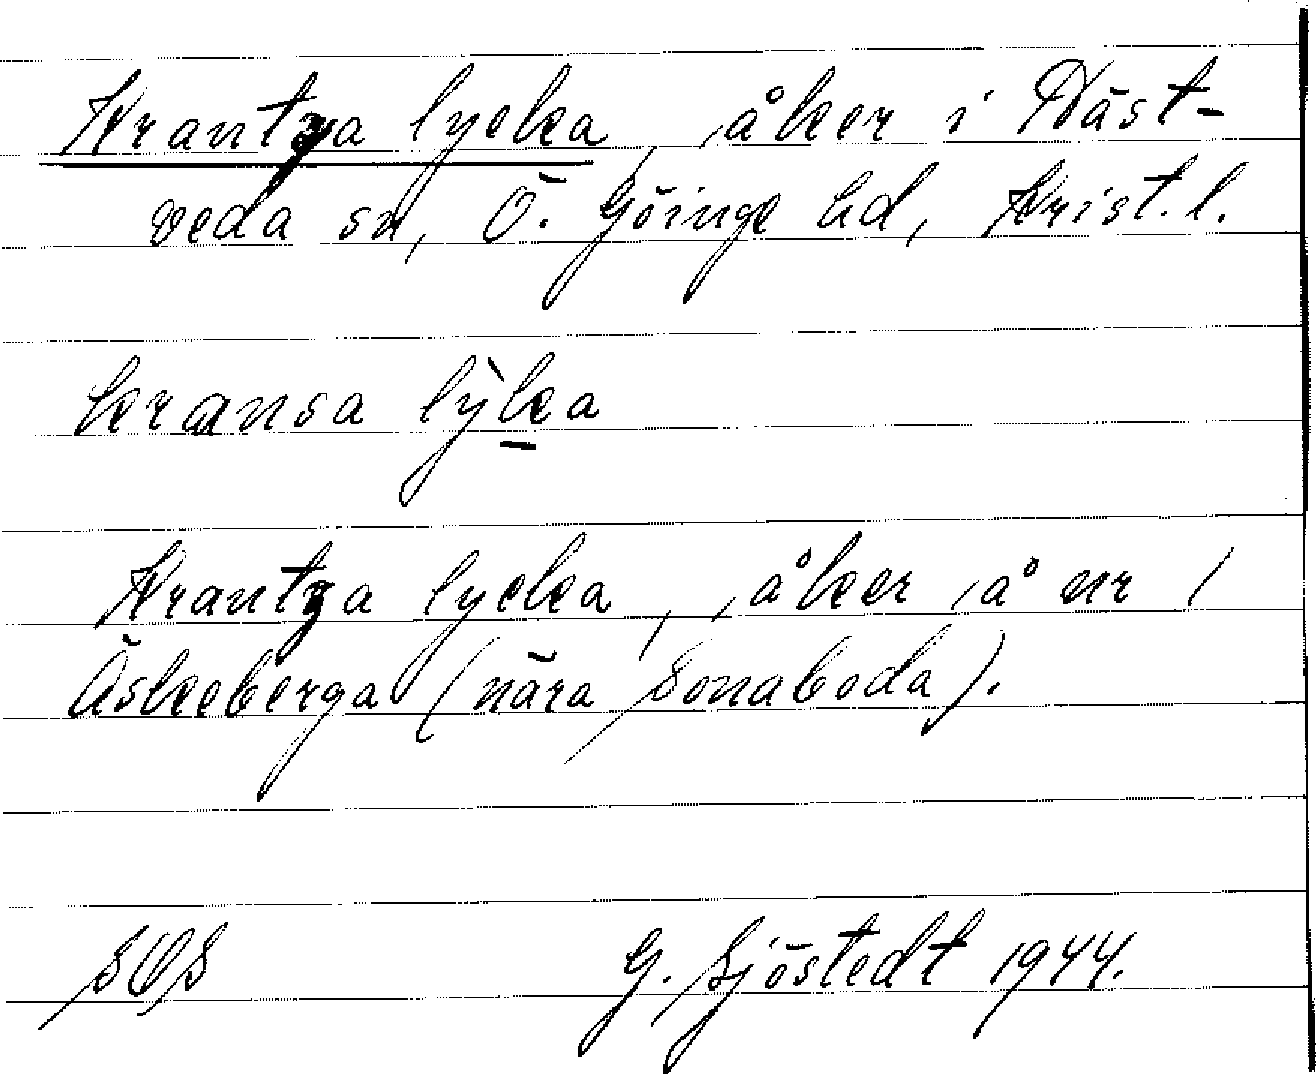 Krantza lycka, åker i Näst-
veda sn, Ö. Göinge hd, Krist. l.
kransa lỳka
Krantza lycka, åker å nr 1
Äskeberga (nära Sonaboda).
SOS G. Sjöstedt 1944.